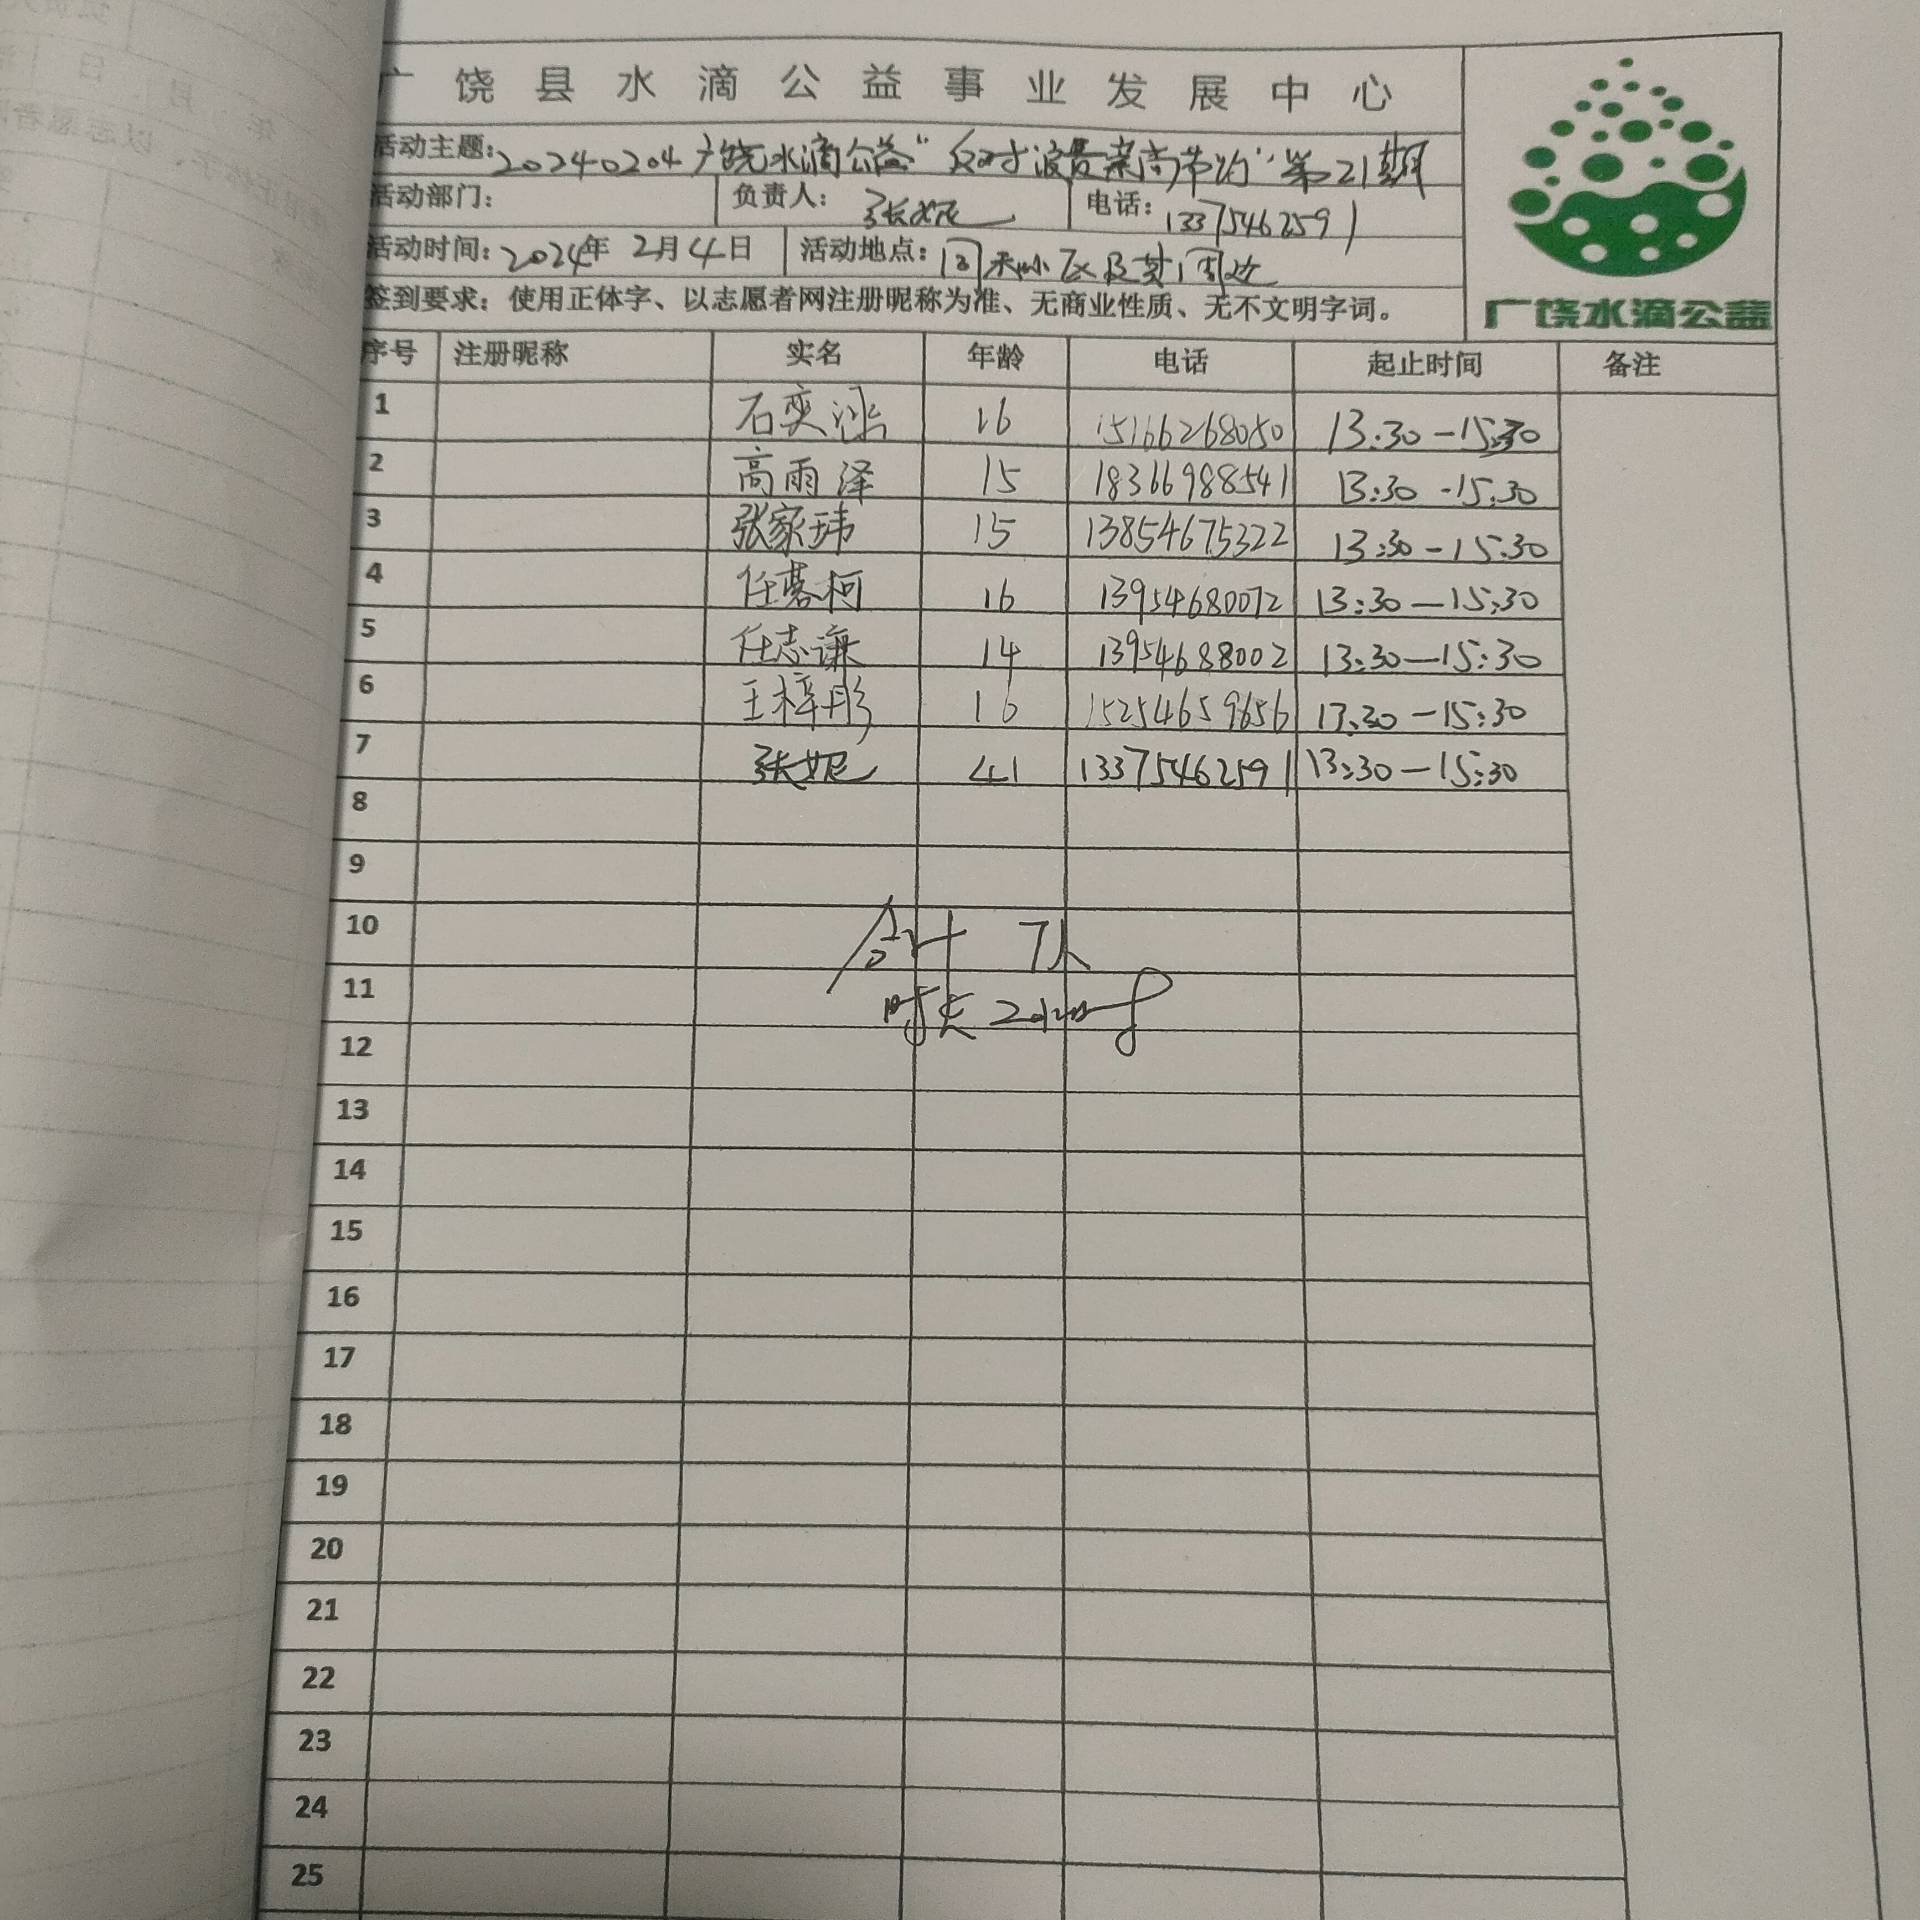 广饶县水滴公益事业发展中心
活动主题:20240204广饶水滴公益"反对浪费崇尚节约"第21期
活动部门: 负责人: 张妮 电话: 13375462591
活动时间:2024年 2月4日 活动地点: 小区及其周边
签到要求: 使用正体字、以志愿者网注册昵称为准、无商业性质、无不文明字词。
广饶水滴公益
序号 注册昵称 实名 年龄 电话 起止时间 备注
1 石奕 16 15166268050 13:30-15:30
2 高雨泽 15 18366988541 13:30-15:30
3 张家玮 15 13854675322 13:30-15:30
4 任蓦柯 16 13954680072 13:30—15:30
5 任志谦 14 13954688002 13:30—15:30
6 王梓彤 16 15254659656 13:30-15:30
7 张妮 41 13375462591 13:30—15:30
8
9
10 合计 7人
11 时长2小时
12
13
14
15
16
17
18
19
20
21
22
23
24
25